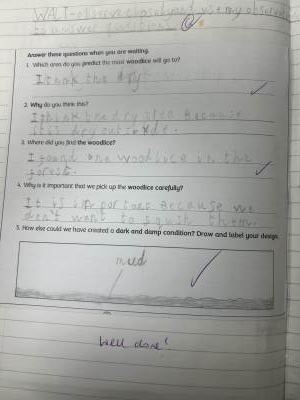 WALT-observe closely and use my observations
to answer questions.
Answer these questions when you are waiting.
1. Which area do you predict the most woodlice will go to?
I think the dry
2. Why do you think this?
I think the dry area Because
it is dry outside.
3. Where did you find the woodlice?
I found one woodlice in the
forest.
4. Why is it important that we pick up the woodlice carefully?
It is Because we
don't want to squish them.
5. How else could we have created a dark and damp condition? Draw and label your design.
mud
Well done!